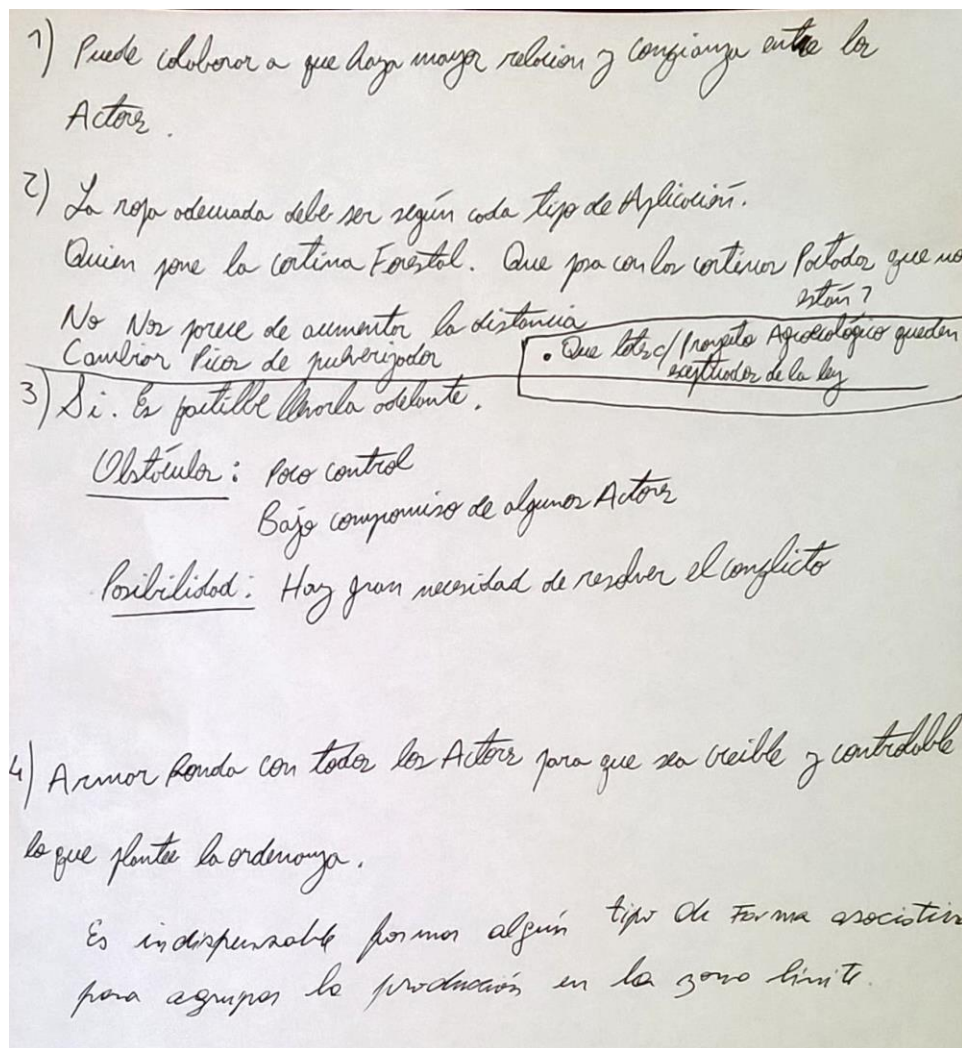 1) Puede colaborar a que haya mayor relación y confianza entre los
Actores.
2) La ropa adecuada debe ser según cada tipo de Aplicación.
Quien pone la cortina Forestal. Que pasa con las cortinas Podadas que no
están?
No Nos parece de aumentar la distancia
Cambiar Picos de pulverizador
• Que lotes c/ Proyecto Agroecológico queden
exeptuados de la ley
3) Si. Es partible llevarla adelante.
Obstáculos: Poco control
Bajo compromiso de algunos Actores
Posibilidad: Hay gran necesidad de resolver el conflicto
4) Armar Ronda con todos los Actores para que sea creible y controlable
lo que plantee la ordenanza.
Es indispensable formar algún tipo de Forma asociativa
para agrupar la producción en la zona límite.